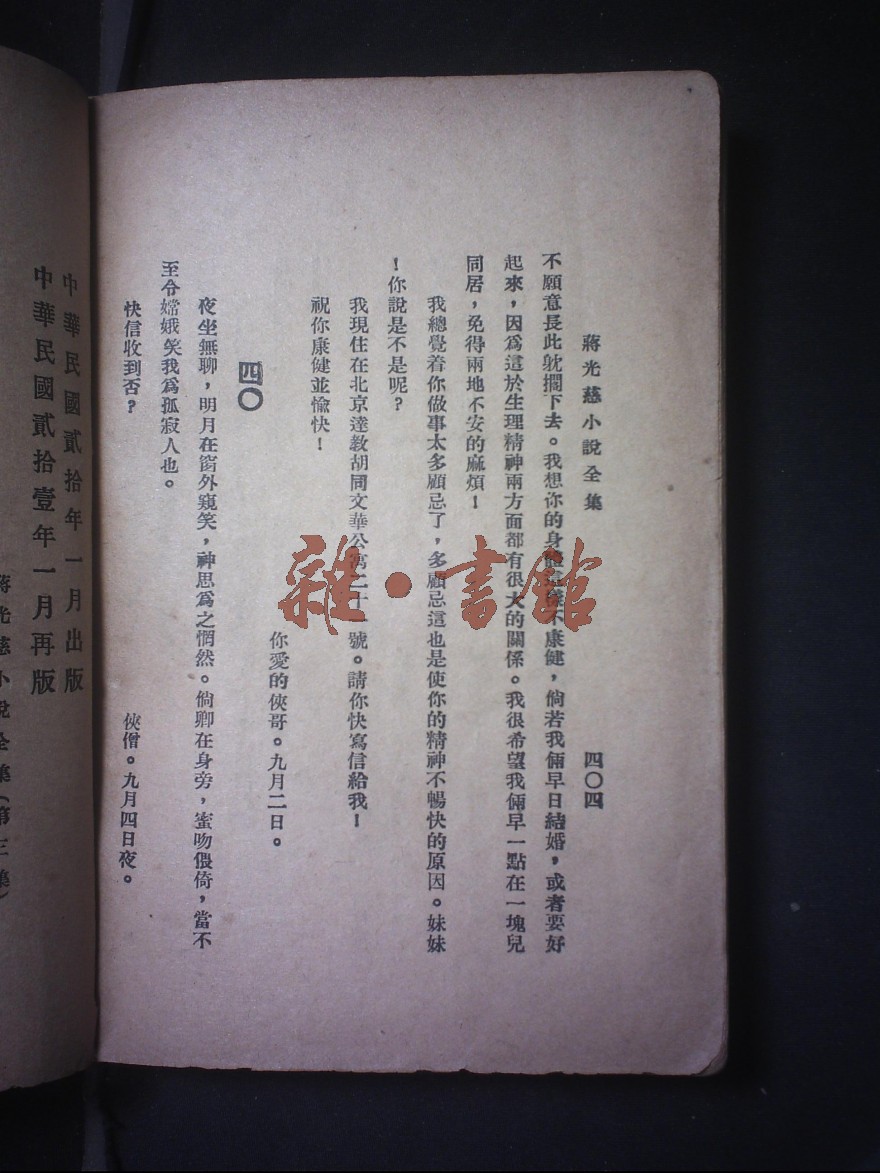 蔣光慈小說全集
四〇四
不願意長此躭擱下去。我想你的身體不康健，倘若我倆早日結婚，或者要好
起來，因爲這於生理精神兩方面都有很大的關係。我很希望我倆早一點在一塊兒
同居，免得兩地不安的麻煩！
我總覺着你做事太多顧忌了，多顧忌這也是使你的精神不暢快的原因。妹妹
！你說是不是呢？
我現住在北京達教胡同文華公寓二十一號。請你快寫信給我！
祝你康健並愉快！
你愛的俠哥。九月二日。
四〇
夜坐無聊，明月在窗外窺笑，神思爲之惘然。倘卿在身旁，蜜吻偎倚，當不
至令嫦娥笑我爲孤寂人也。
快信收到否？
俠僧。九月四日夜。
中華民國貳拾年一月出版
中華民國貳拾壹年一月再版
蔣光慈小說全集（第三集）
雜·書館